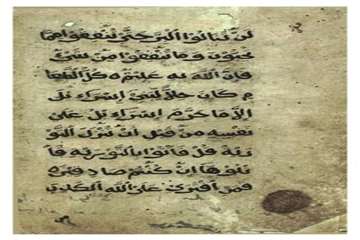 لن تنالوا البر حتى تنفقوا مما
تحبون وما تنفقوا من شيء
فإن الله به عليم كل الطعا
م كان حلا لبني إسراءيل
إلا ما حرم إسراءيل على
نفسه من قبل أن تنزل التو
رية قل فأتوا بالتورية فا
تلوها إن كنتم صادقين
فمن افترى على الله الكذب